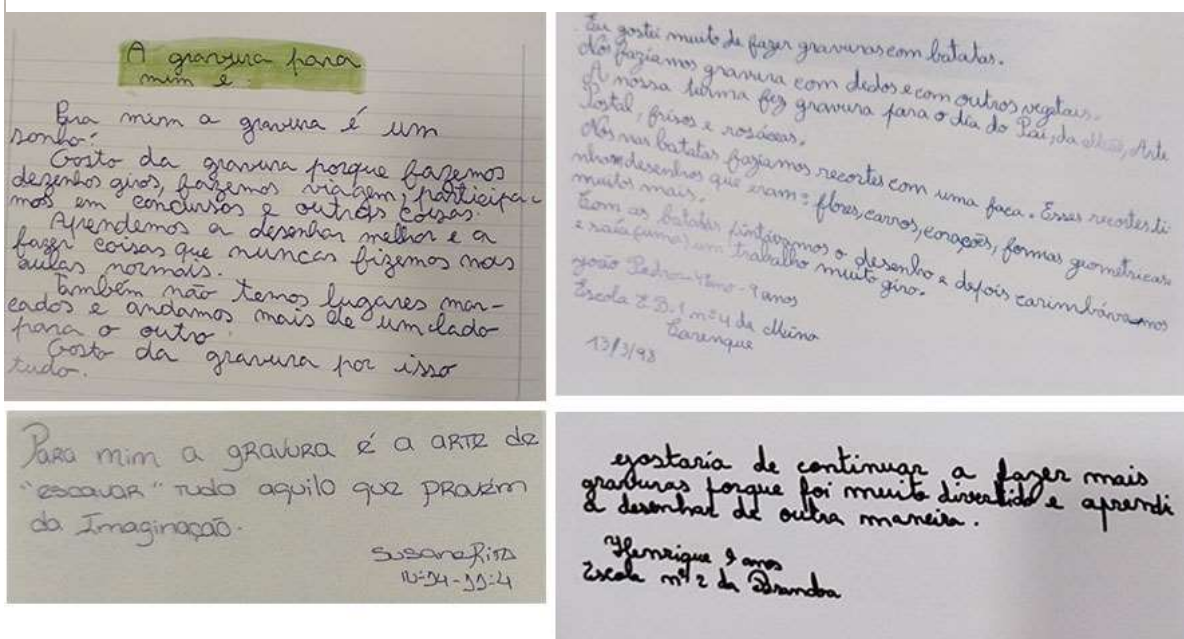 A gravura para
mim é
Para mim a gravura é um
sonho!
Gosto da gravura porque fazemos
dezenhos giros, fazemos viagem, participa-
mos em concursos e outras coizas.
Aprendemos a desenhar melhor e a
fazer coisas que nuncas fizemos nas
aulas normais.
Também não temos lugares mar-
cados e andamos mais de um lado
para o outro.
Gosto da gravura por isso
tudo.
Eu gostei muito de fazer gravuras com batatas.
Nós fazíamos gravura com dedos e com outros vegetais.
A nossa turma fez gravura para o dia do Pai, da Mãe, Arte
Postal, frisos e rosáceas.
Nós nas batatas fazíamos recortes com uma faca. Esses recortes ti
nham desenhos que eram: flores, carros, corações, formas geométricas e
muitos mais.
Com as batatas pintávamos o desenho e depois carimbávamos
e saía (uma) um trabalho muito giro.
João Pedro - 4º ano - 9 anos
Escola E.B.1 nº 4 de Mina
Carenque
13/3/98
Para mim a gravura é a arte de
"escavar" tudo aquilo que provém
da Imaginação.
Susana Rita
gostaria de continuar a fazer mais
gravuras porque foi muito divertido e aprendi
a desenhar de outra maneira.
Henrique 9 anos
Escola nº 2 da Brandoa